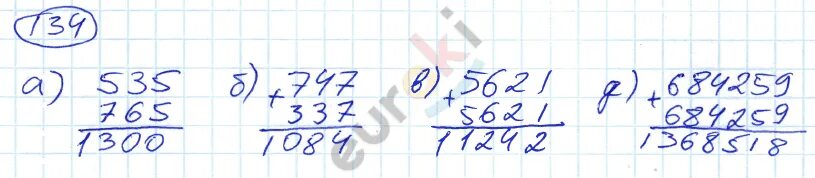 134
а) 535 б) 747 в) 5621 г) 684259
765 + 337 + 5621 + 684259
1300 1084 11242 1368518
euroki